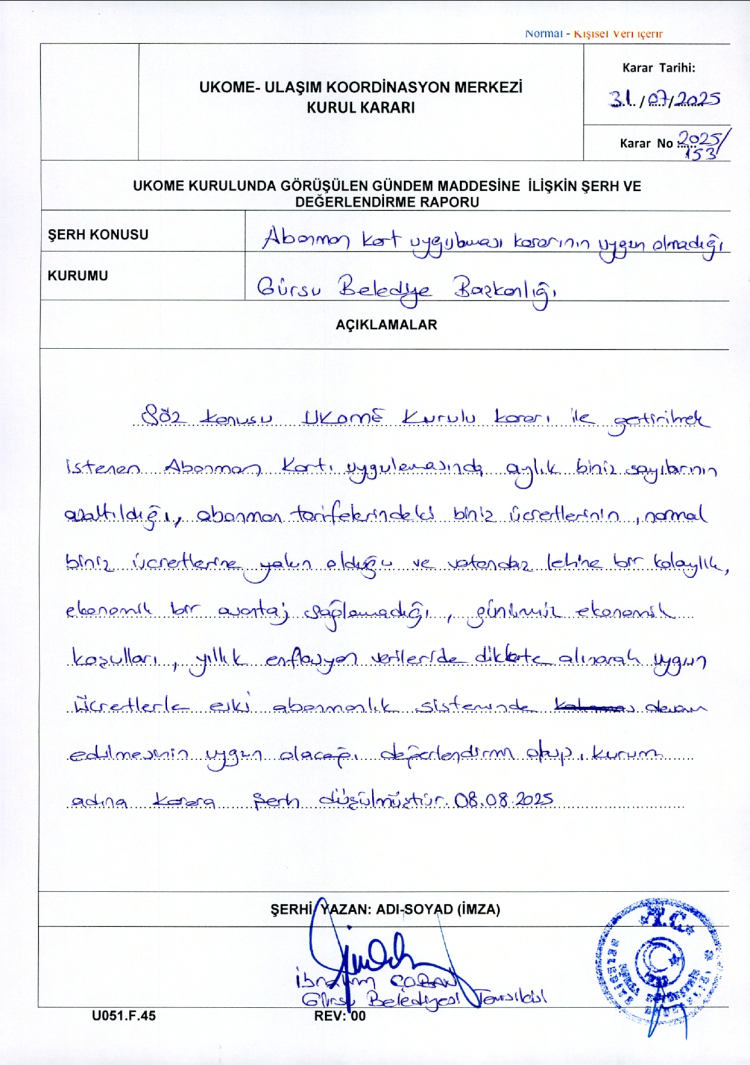 Normal - Kişisel Veri İçerir
UKOME- ULAŞIM KOORDİNASYON MERKEZİ
KURUL KARARI
Karar Tarihi:
31./07/2025
Karar No :2025/
153
UKOME KURULUNDA GÖRÜŞÜLEN GÜNDEM MADDESİNE İLİŞKİN ŞERH VE
DEĞERLENDİRME RAPORU
ŞERH KONUSU
Abonman Kart uygulaması kararının uygun olmadığı
KURUMU
Gürsu Belediye Başkanlığı
AÇIKLAMALAR
Söz konusu UKOME Kurulu kararı ile getirilmek
istenen Abonman Kartı uygulamasında, aylık biniş sayılarının
azaltıldığı, abonman tarifelerindeki biniş ücretlerinin, normal
biniş ücretlerine yakın olduğu ve vatandaş lehine bir kolaylık,
ekonomik bir avantaj sağlamadığı, günümüz ekonomik
koşulları, yıllık enflasyon verileride dikkate alınarak uygun
ücretlerle eski abonmanlık sisteminde devam
edilmesinin uygun olacağı değerlendirmi olup, kurum
adına karara şerh düşülmüştür. 08.08.2025
ŞERHİ YAZAN: ADI-SOYAD (İMZA)
İbrahim ÇOBAN
Gürsu Belediyesi Temsilcisi
T.C.
U051.F.45
REV: 00